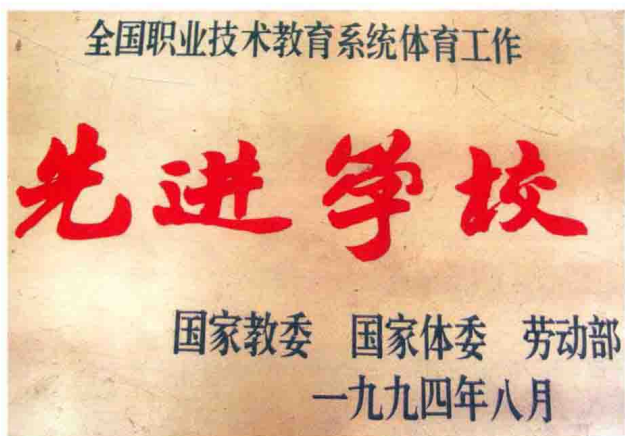 全国职业技术教育系统体育工作
先进学校
国家教委 国家体委 劳动部
一九九四年八月